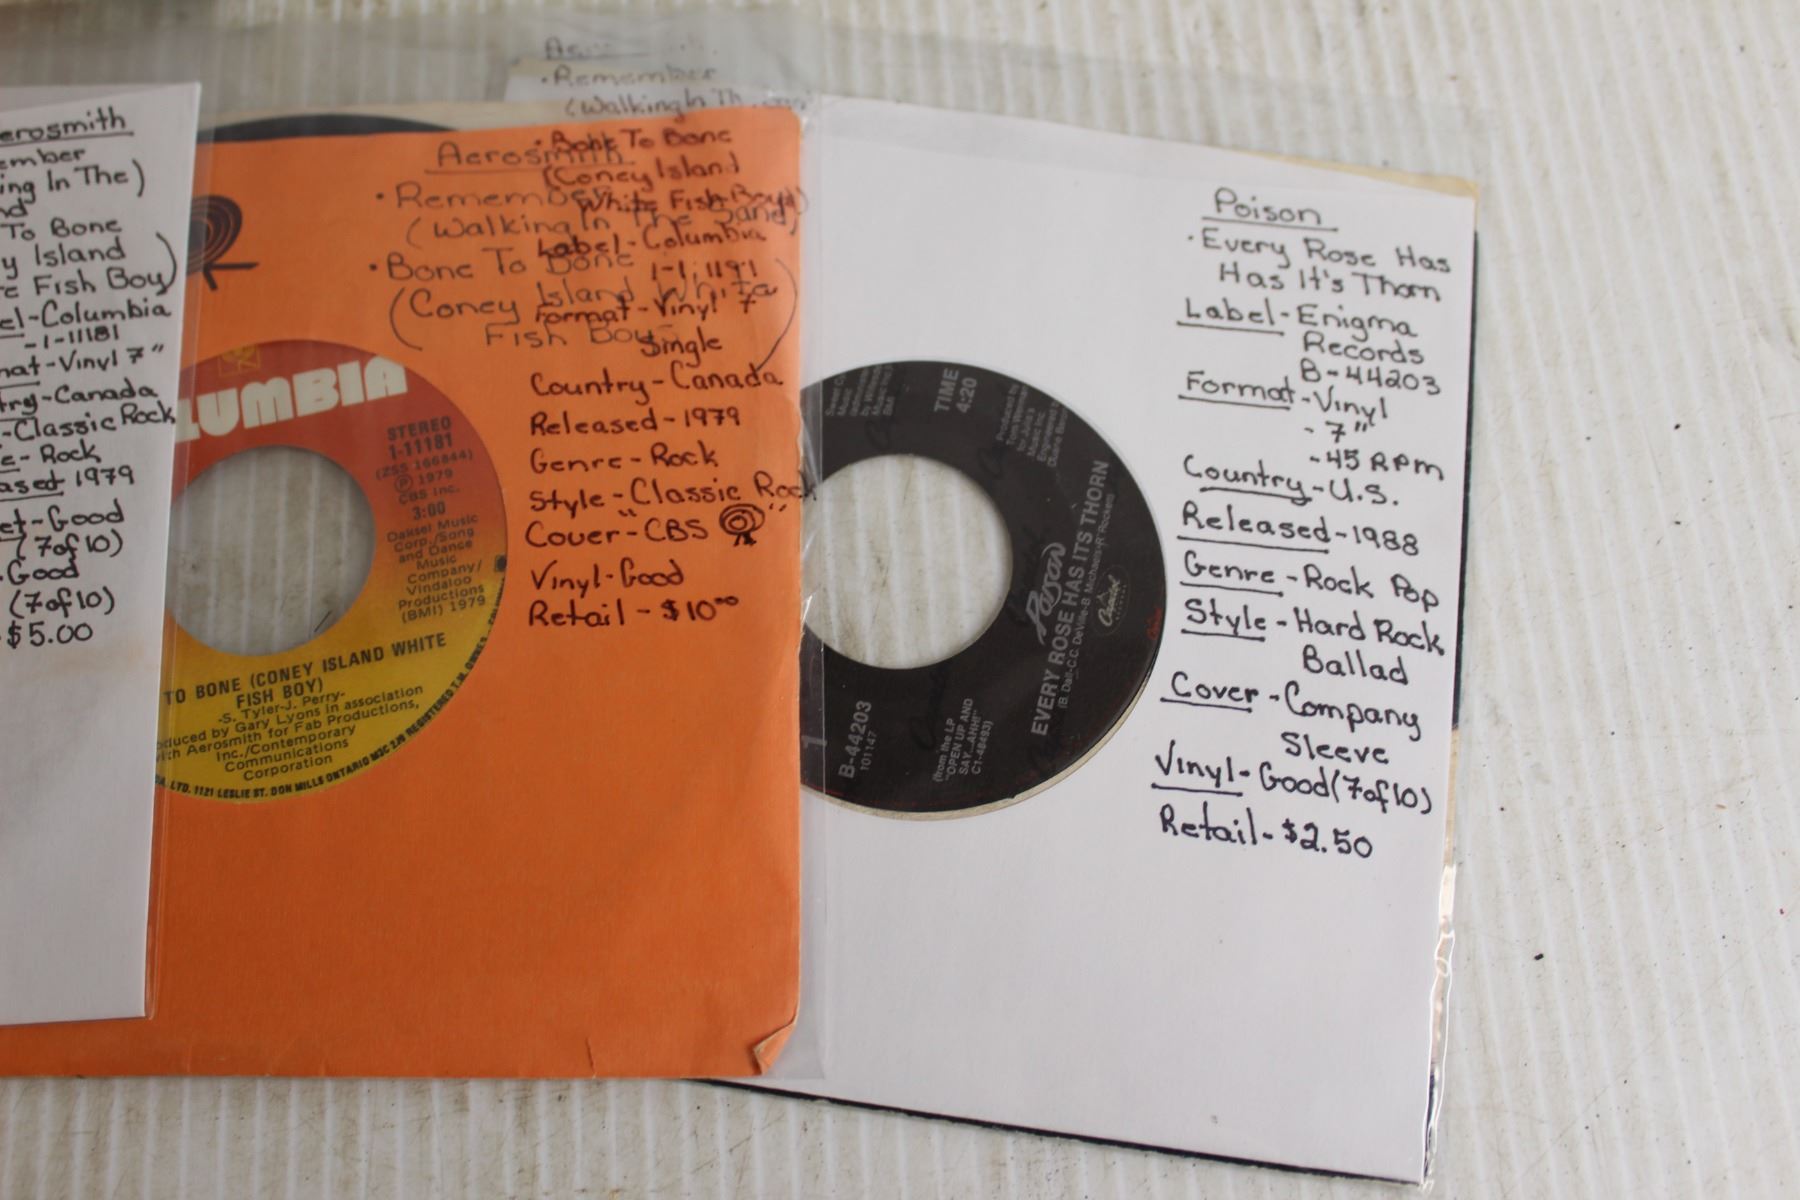 erosmith
ember
ing In The)
nd
To Bone
y Island
e Fish Boy)
el-Columbia
-1-11181
mat-Vinyl 7"
try-Canada
-Classic Rock
e-Rock
ased 1979
et-Good
(7of10)
-Good
(7of10)
-$5.00
LUMBIA
STEREO
1-11181
(ZSS 166844)
Ⓟ 1979
CBS Inc.
3:00
Daksel Music
Corp./Song
and Dance
Music
Company/
Vindaloo
Productions
(BMI) 1979
TO BONE (CONEY ISLAND WHITE
FISH BOY)
-S. Tyler-J. Perry-
oduced by Gary Lyons in association
ith Aerosmith for Fab Productions,
Inc./Contemporary
Communications
Corporation
LTD. 1121 LESLIE ST. DON MILLS ONTARIO M3C 2J9 REGISTERED T.M.
Aerosmith
• Remember
(Walking In The Sand)
• Bone To Bone
(Coney Island White
Fish Boy)
• Remember
(Walking In Th
• Bone To Bone
(Coney Island
White Fish Boy)
Label-Columbia
Format-Vinyl 7"
Single
Country-Canada
Released-1979
Genre-Rock
Style-Classic Rock
Cover-"CBS "
Vinyl-Good
Retail-$10.00
TIME
4:20
Poison
EVERY ROSE HAS ITS THORN
(B. Dall-C.C. DeVille-B. Michaels-R. Rockett)
Capitol
B-44203
101147
(from the LP
"OPEN UP AND
SAY...AHH!"
C1-48493)
Poison
• Every Rose Has
Has It's Thorn
Label-Enigma
Records
B-44203
Format-Vinyl
- 7"
-45 RPM
Country-U.S.
Released-1988
Genre-Rock Pop
Style-Hard Rock
Ballad
Cover-Company
Sleeve
Vinyl-Good(7of10)
Retail-$2.50